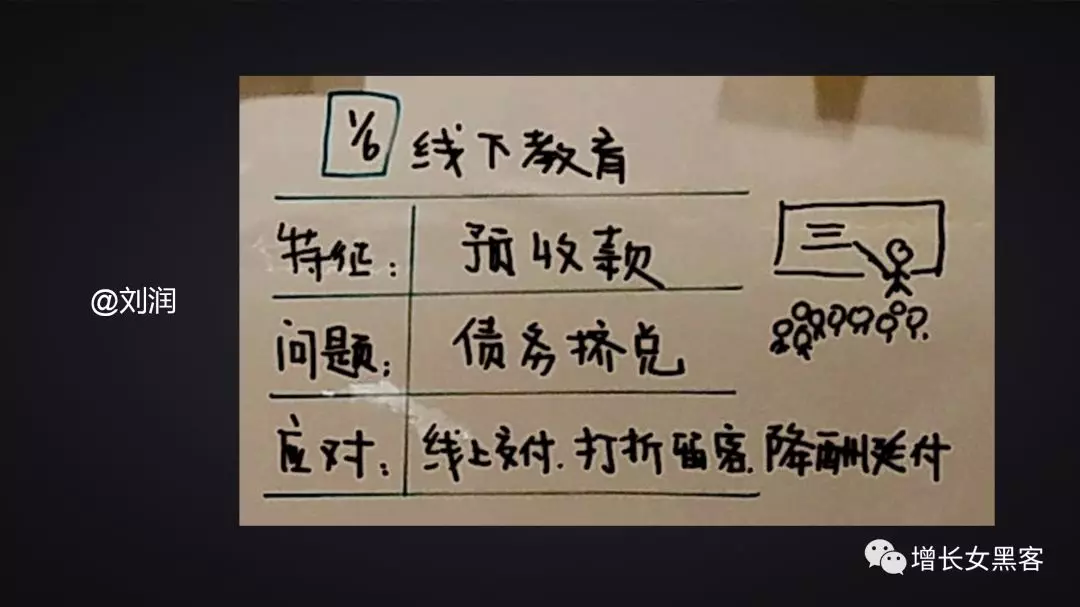 1/6 线下教育
特征: 预收款
问题: 债务挤兑
应对: 线上交付.打折留客.降酬延付
@刘润
增长女黑客